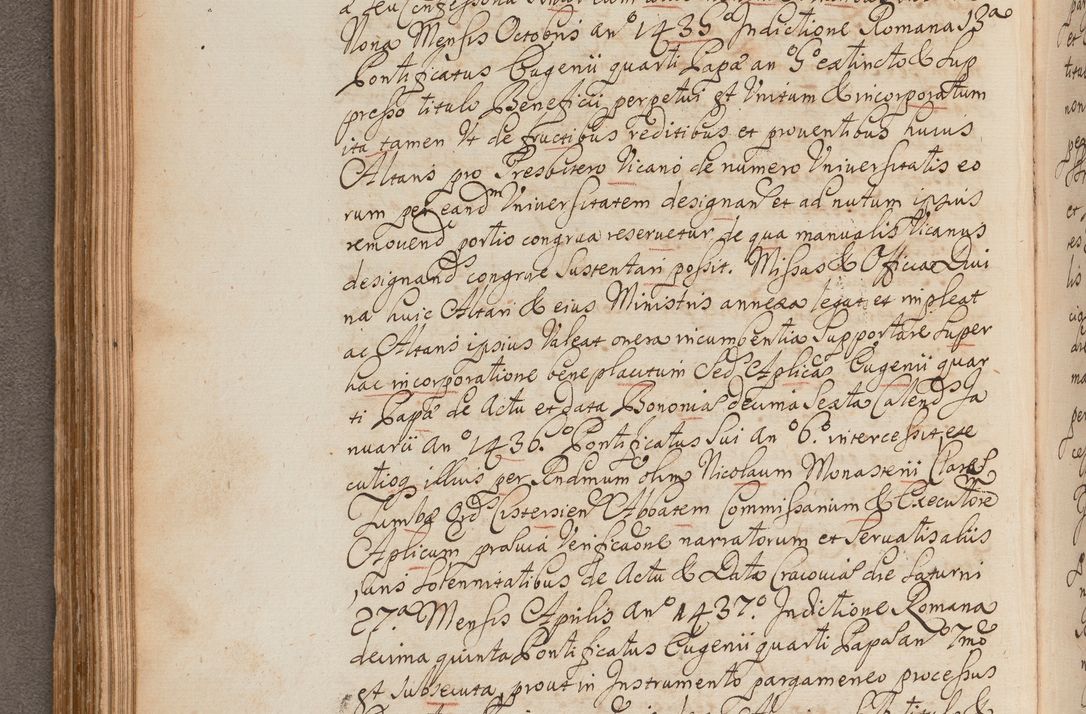 Nona Mensis Octobris an° 1435ª Indictione Romana 13ª
Pontificatus Eugenii quarti Papæ an° 5° extincto & Sup
presso titulo Beneficii perpetui et Unitum & incorporatum
ita tamen Vt de fructibus reditibus et prouentibus huius
Altaris pro Presbitero Vicario de numero Vniuersitatis eo
rum per eandm Vniuersitatem designan et ad nutum ipsius
remouend portio congrua reseruetur de qua manualis Vicarius
designands congrue Sustentari possit. Missas & Officia Diui
na huic Altari & eius Ministris annexa legat et impleat
ac Altaris ipsius Valeat onera incumbentia Supportare Super
hac incorporatione beneplacitum Sed Aplicæ Eugenii quar
ti Papæ de Actu et data Bononiæ decima Sexta Calends Ja
nuarii an° 1436.° Pontificatus Sui an° 6.° intercessit, exe
cutioq illius per Rndmum olim Nicolaum Monasterii Claræ
Tumbæ Ord Cisterciens Abbatem Commissarium & Executorem
Aplicum præuia Verificaone narratorum et Seruatis aliis
iuris Solennitatibus de Actu & Data Cracouiæ die Saturni
27.ª Mensis Aprilis an° 1437.° Indictione Romana
decima quinta Pontificatus Eugenii quarti Papæ an° 7mo
est Subsecuta, prout in Instrumento pargameneo processus